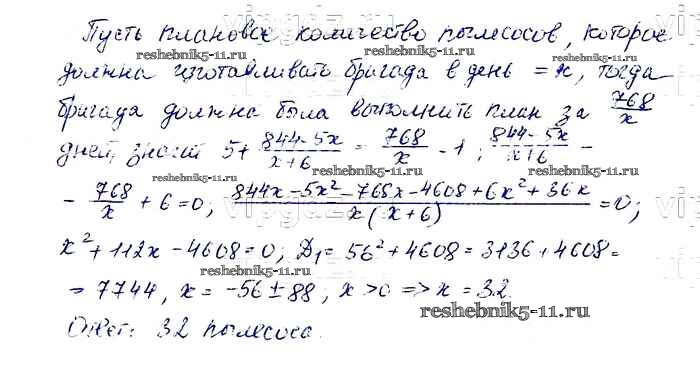 Пусть плановое количество пылесосов, которое
reshebnik5-11.ru reshebnik5-11.ru
должна изготавливать бригада в день = x, тогда
бригада должна была выполнить план за 768/x
дней, значит 5 + (844-5x)/(x+6) = 768/x - 1; (844-5x)/(x+6) -
reshebnik5-11.ru reshebnik5-11.ru
- 768/x + 6 = 0; (844x - 5x² - 768x - 4608 + 6x² + 36x)/(x(x+6)) = 0;
x² + 112x - 4608 = 0; D₁ = 56² + 4608 = 3136 + 4608 =
reshebnik5-11.ru reshebnik5-11.ru
= 7744, x = -56 ± 88; x > 0 => x = 32.
reshebnik5-11.ru
Ответ: 32 пылесоса.